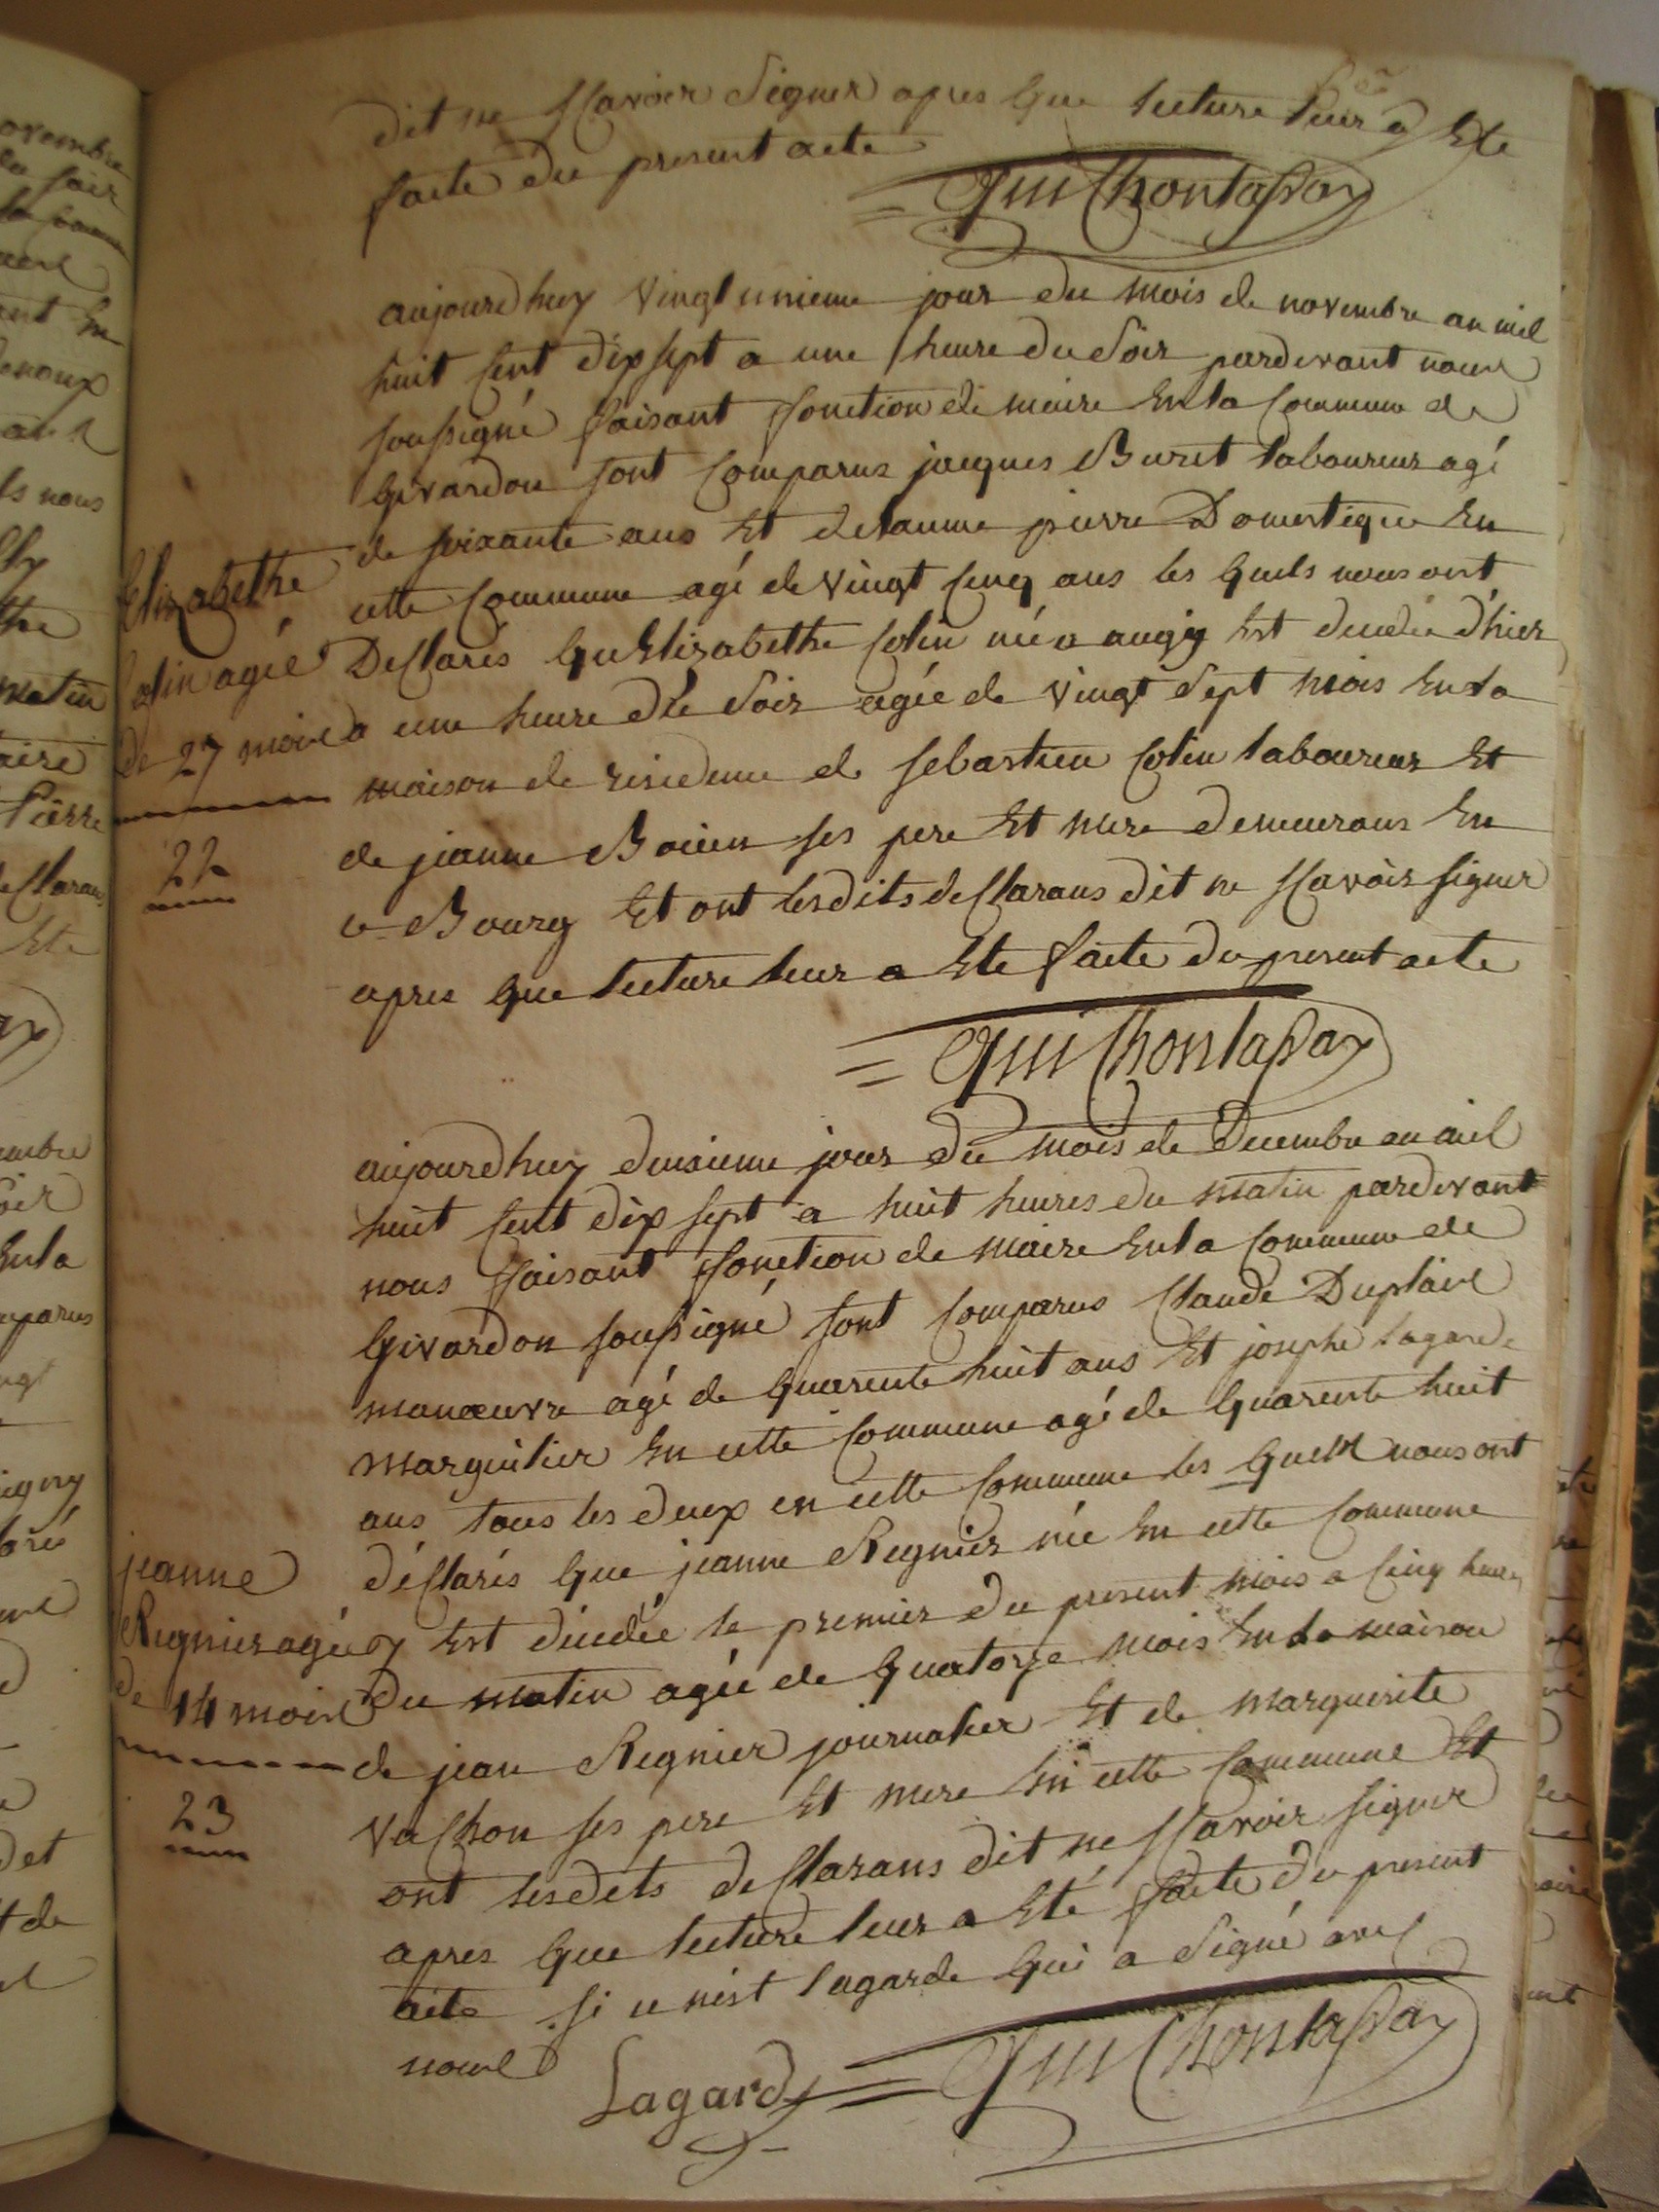 dit ne scavoir signer apres que lecture leur a ete
faite du present acte
Guichonlassay
aujourdhuy vingt unieme jour du mois de novembre an mil
huit cent dix sept a une heure du soir pardevant nous
soussigné faisant fonction de maire en la commune de
Givardon sont comparus jacques Buret laboureur agé
de soixante ans et delaume pierre Domestique en
cette commune agé de vingt cinq ans les quels nous ont
Elizabethe
Declarés qu'Elisabethe Colin née a augy est decedée d'hier
Colin agée
a une heure du soir agée de vingt sept mois en la
de 27 mois
maison de residence de sebastien Colin laboureur et
22
de jeanne Boiien ses pere et mere demeurans en
ce Bourg et ont lesdits desclarans dit ne scavoir signer
apres que lecture leur a ete faite du present acte
Guichonlassay
aujourdhuy deuxieme jour du mois de Decembre an mil
huit cent dix sept a huit heures du matin pardevant
nous faisant fonction de maire en la commune de
Givardon soussigné sont comparus Claude Duplaix
manoeuvre agé de quarente huit ans et josephe lagarde
marguilier en cette commune agé de quarente huit
ans tous les deux en cette commune les quels nous ont
déclarés que jeanne Regnier née en cette commune
jeanne
y est décedée le premier du present mois a cinq heures
Regnier agée
du matin agée de quatorze mois en la maison
de 14 mois
de jean Regnier journalier et de marguerite
23
vachon ses pere et mere en cette commune et
ont lesdits desclarans dit ne scavoir signer
apres que lecture leur a eté faite du present
acte si ce nest lagarde qui a signé avec
nous
Lagarde
Guichonlassay